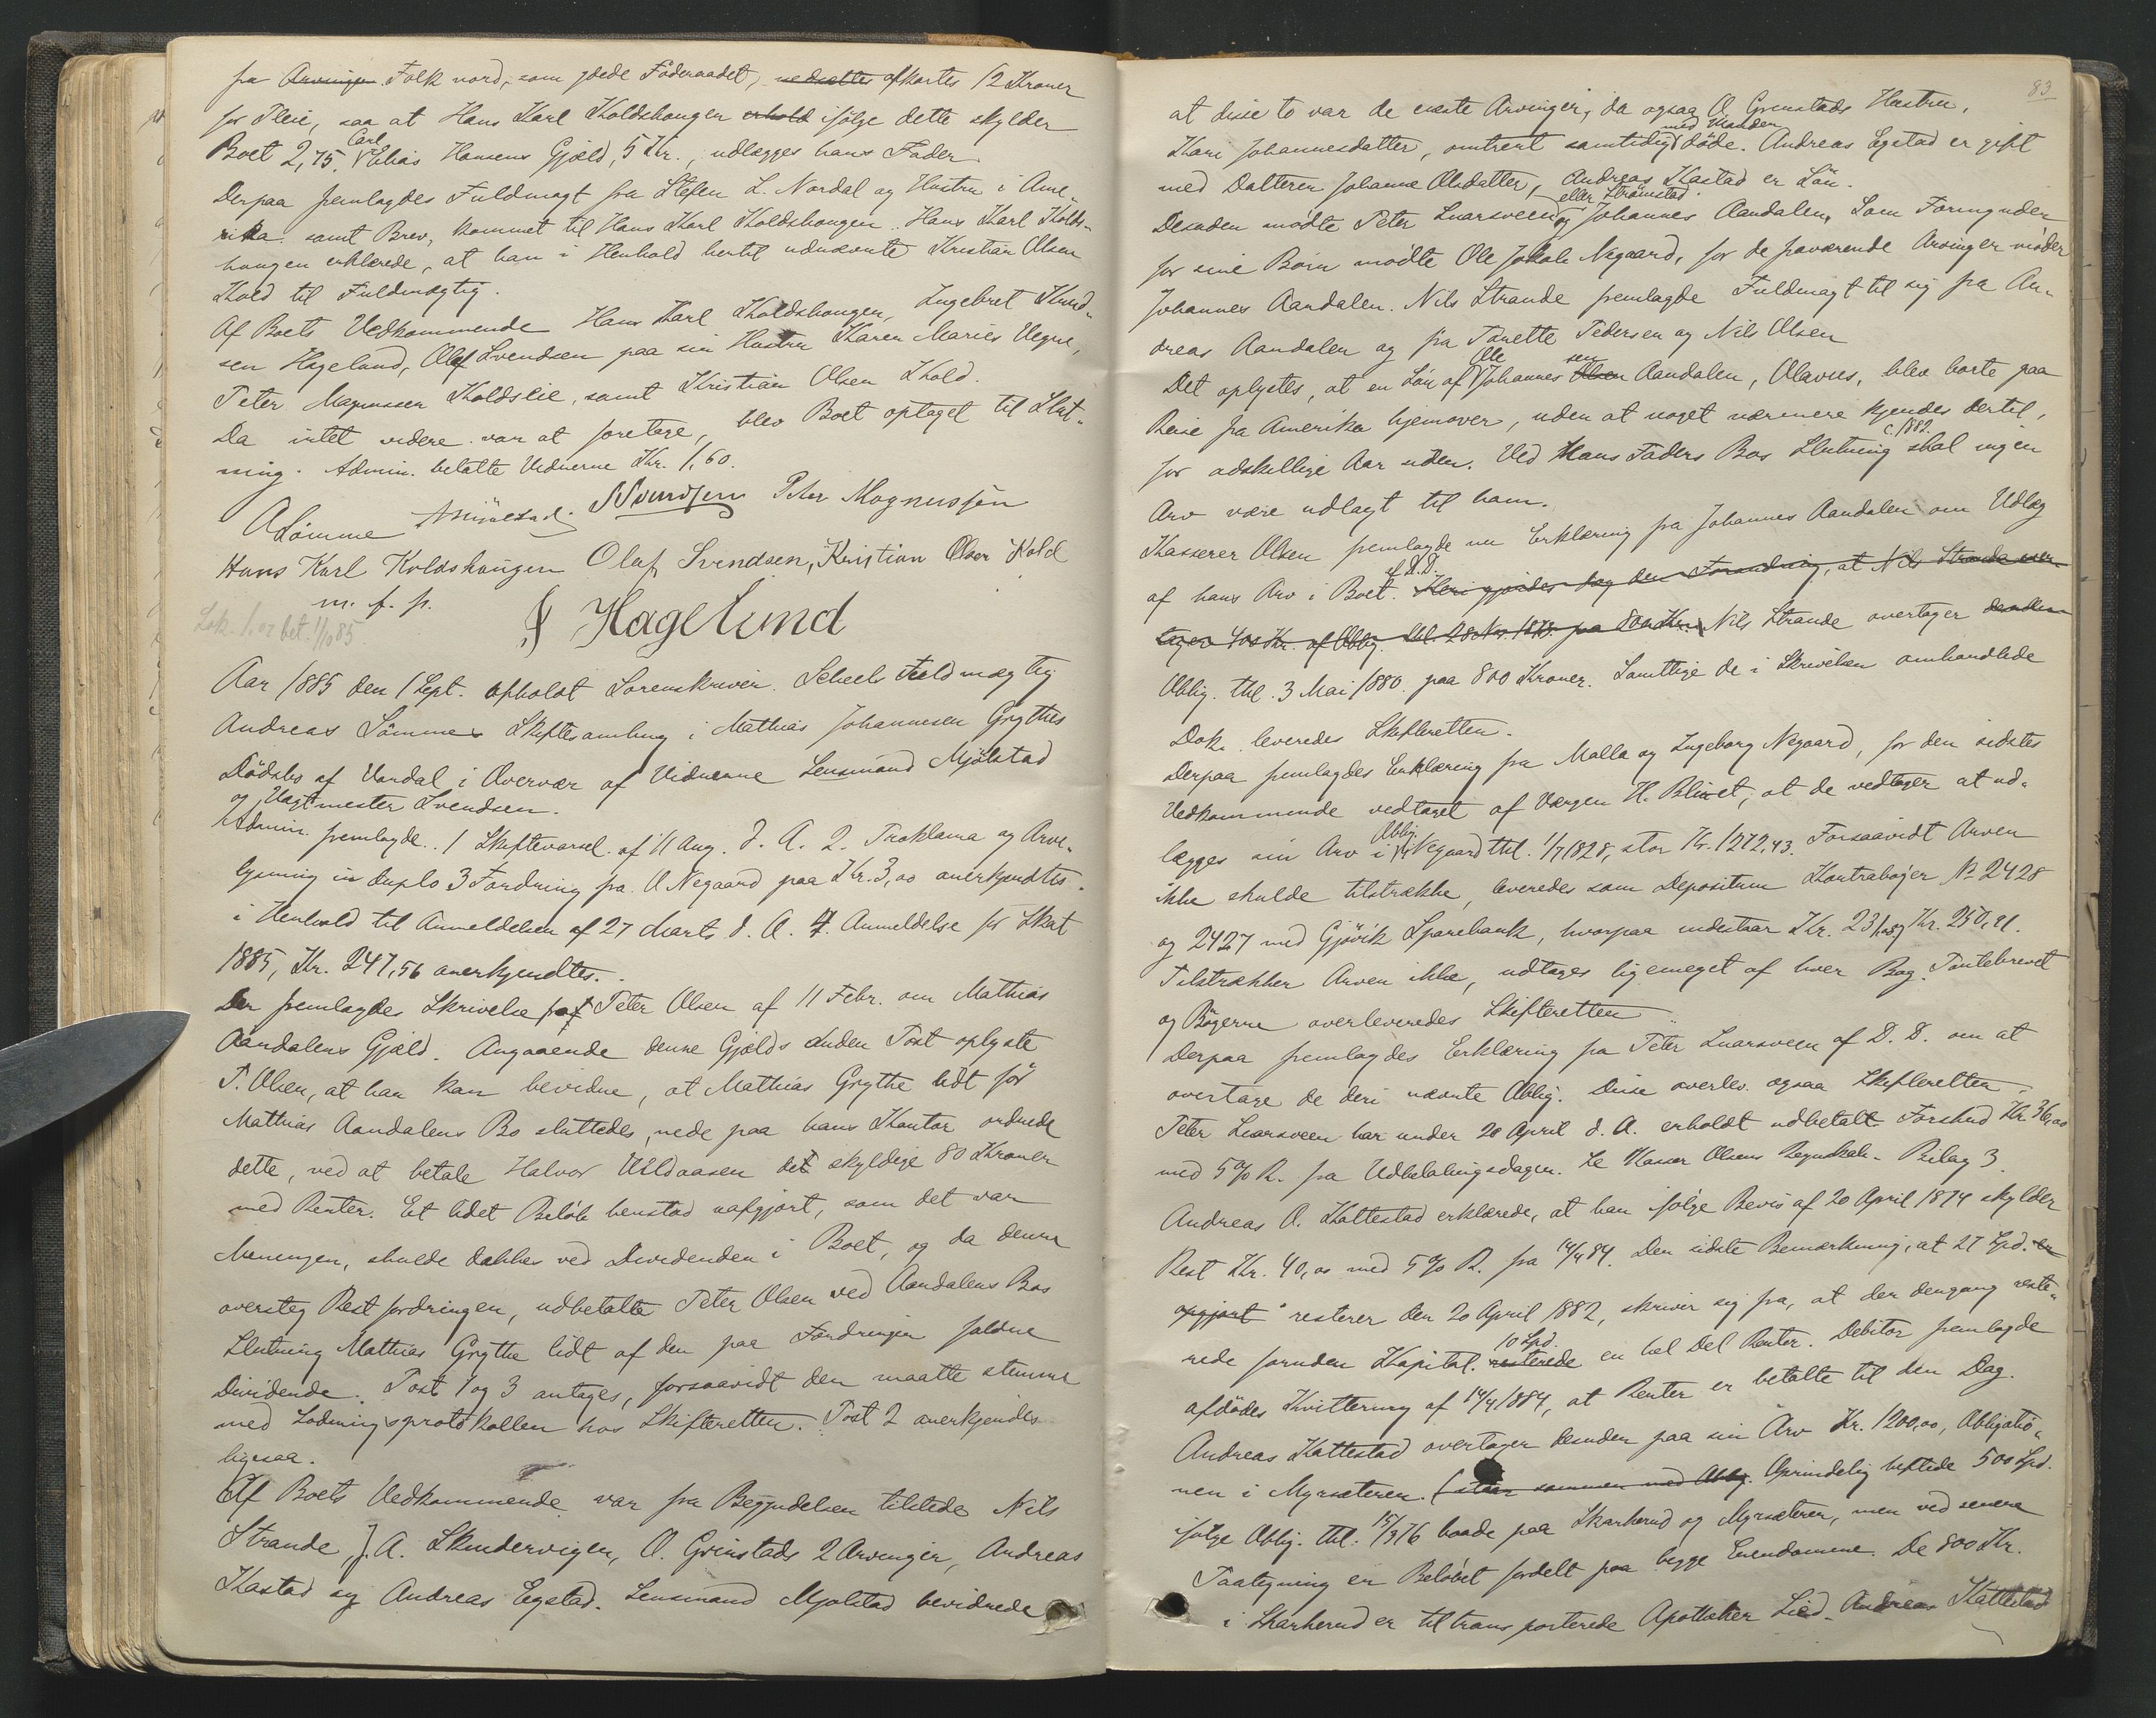 fra Arvinger Folk nord, som gjorde Föderaadet, nedsattes afkortes 12 Kroner
for Pleie, saa at Hans Karl Koldshaugen erhold ifölge dette skylder
Boet 2,75. Carl Elias Hansens Gjæld, 5 Kr., udlægges hans Fader.
Derpaa fremlagdes Fuldmagt fra Steffen L. Nordal og Hustru i Ame-
rika samt Brev, kommet til Hans Karl Koldshaugen. Hans Karl Kolds-
haugen erklærede, at han i Henhold hertil udnævnte Kristian Olsen
Kold til Fuldmægtig.
Af Boets Vedkommende Hans Karl Koldshaugen, Ingebret Knud-
sen Hagelund, Olaf Svendsen paa sin Hustru Karen Maries Vegne,
Peter Magnussen Koldslie, samt Kristian Olsen Kold.
Da intet videre var at foretage, blev Boet optaget til Slut-
ning. Admin. betalte Vidnerne Kr. 1,60.
A Sömme AMjölstad. NSvendsen Peter Magnussen
Hans Karl Koldshaugen Olaf Svendsen, Kristian Olsen Kold
m. f. p.
Hagelund
Sok. 1.07 bet. 1/10 85
Aar 1885 den 1 Sept. afholdt Sorenskriver Scheels Fuldmægtig
Andreas Sömme Skiftesamling i Mathias Johannesen Grythes
Dödsbo af Vardal i Overvær af Vidnerne Lensmand Mjölstad
og Vagtmester Svendsen.
Admin. fremlagde. 1 Skiftevarsel af 11 Aug. d. A. 2. Proklama og Arve-
lysning in duplo 3 Fordring fra O Negaard paa Kr. 3,00 anerkjendtes
i Henhold til Anmeldelsen af 27 Marts d. A. 4. Anmeldelse for Skat
1885, Kr. 247,56 anerkjendtes.
Der fremlagdes Skrivelse af Peter Olsen af 11 Febr. om Mathias
Aandalens Gjæld. Angaaende denne Gjælds anden Post oplyste
P. Olsen, at han kan bevidne, at Mathias Grythe lidt för
Mathias Aandalens Bo sluttedes, nede paa hans Kontor ordnede
dette, ved at betale Halvor Uldaasen det skyldige 80 Kroner
med Renter. Et lidet Belöb henstod uafgjort, som det var
Meningen, skulde dækkes ved Dividenden i Boet, og da denne
oversteg Restfordringen, udbetalte Peter Olsen ved Aandalens Bos
Slutning Mathias Grythe lidt af den paa Fordringen faldne
Dividende. Post 1 og 3 antages, forsaavidt den maatte stemme
med Lodningsprotokollen hos Skifteretten. Post 2 anerkjendes
ligesaa.
Af Boets Vedkommende var fra Begyndelsen tilstede Nils
Strande, J. A. Skundervigen, O. Grinstads 2 Arvinger, Andreas
Kastad og Andreas Egstad. Lensmand Mjölstad bevidnede
83
at disse to var de eneste Arvinger, da ogsaa O. Grinstads Hustru,
Kari Johannesdatter, omtrent samtidigt med Manden döde. Andreas Egstad er gift
med Datteren Johanne Olsdatter, Andreas Kastad er Sön.
Desuden mödte Peter Snarsveen eller Strömstad og Johannes Aandalen. Som Formynder
for sine Börn mödte Ole Jakob Negaard, for de fraværende Arvinger möder
Johannes Aandalen. Nils Strande fremlagde Fuldmagt til sig fra An-
dreas Aandalen og fra Panette Pedersen og Nils Olsen
Det oplystes, at en Sön af Ole Johannes Olsen sen Aandalen, Olavus, blev borte paa
Reise fra Amerika hjemover, uden at noget nærmere kjendes dertil,
for adskillige Aar siden. Ved Hans Faders Bos Slutning c. 1882. skal ingen
Arv være udlagt til ham.
Kasserer Olsen fremlagde nu Erklæring fra Johannes Aandalen om Udlæg
af hans Arv i Boet. af D.D. Heri gjordes dog den Forandring, at Nils Strande over-
tager 400 Kr. af Oblig. thl. 28 Nov. 1878 paa 800 Kr. Nils Strande overtager desuden
Oblig. thl. 3 Mai 1880 paa 800 Kroner. Samtlige de i Skrivelsen omhandlede
Dok. leveredes Skifteretten.
Derpaa fremlagdes Erklæring fra Malla og Ingeborg Negaard, for den sidstes
Vedkommende vedtaget af Værgen H. Blixet, at de vedtager at ud-
lægges sin Arv i Oblig. Negaard thl. 1/7 1828, stor Kr. 1272,43. Forsaavidt Arven
ikke skulde tilstrække, leveredes som Depositum Kontrabøger No 2428
og 2427 med Gjövik Sparebank, hvorpaa indestaar Kr. 231,87 Kr. 250,21.
Tilstrækker Arven ikke, udtages ligemeget af hver Bog. Pantebrevet
og Bögerne overleveredes Skifteretten.
Derpaa fremlagdes Erklæring fra Peter Snarsveen af D. D. om at
overtage de deri nævnte Oblig. Disse overlev. ogsaa Skifteretten.
Peter Snarsveen har under 20 April d. A. erholdt udbetalt Forskud Kr. 36,00
med 5% R. fra Udbetalingsdagen. Se Kasser Olsens Regnskab. Bilag 3.
Andreas O. Kattestad erklærede, at han ifölge Bevis af 20 April 1874 skylder
Rest Kr. 40,00 med 5% R. fra 14/4 84. Den sidste Bemærkning, at 27 Spd. er
opgjort resterer den 20 April 1882, skriver sig fra, at der dengang reste-
rede foruden Kapital. resterede 10 Spd. en hel Del Renter. Debitor fremlagde
afdödes Kvittering af 14/4 1884, at Renter er betalte til den Dag.
Andreas Kattestad overtager desuden paa sin Arv Kr. 1200,00, Obligatio-
nen i Myrsæteren. (staar sammen med Oblig. Oprindelig heftede 500 Spd.
ifölge Oblig. thl. 15/3 76 baade paa Skarherud og Myrsæteren, men ved senere
Paategning er Belöbet fordelt paa begge Eiendomme. De 800 Kr.
i Skarherud er tiltransporterede Apotheker Lied. Andreas Kattestad